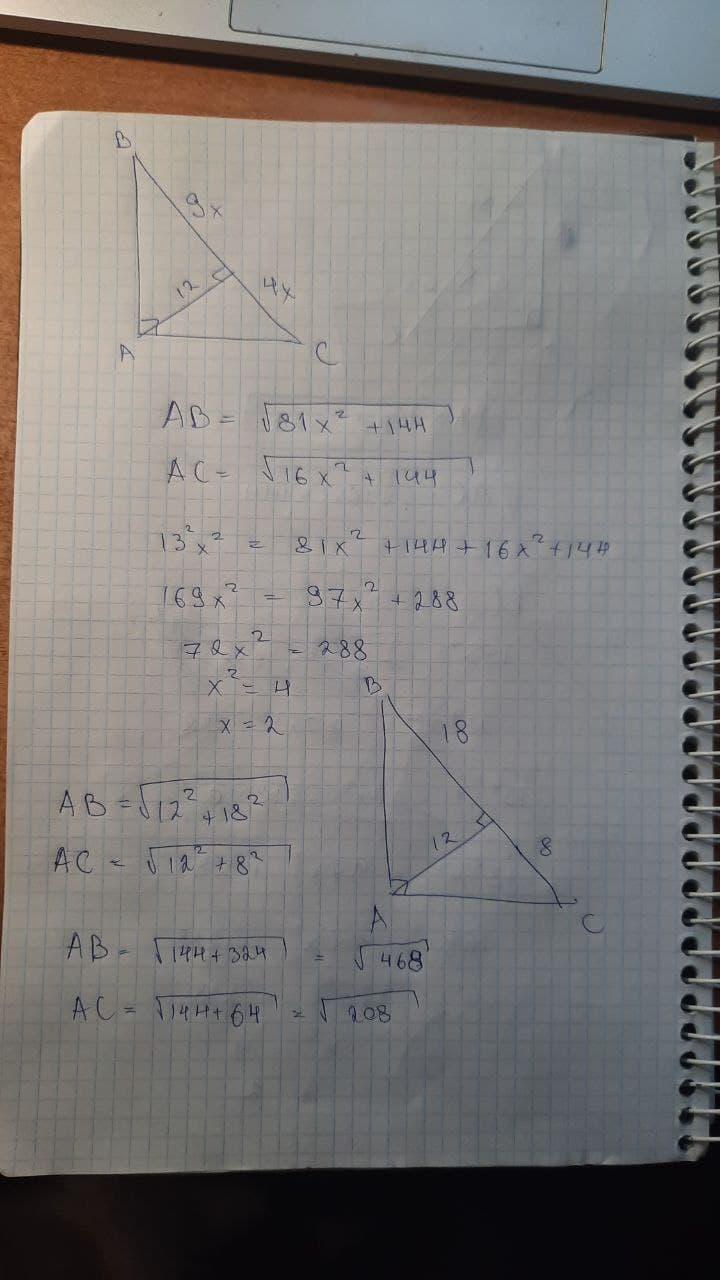 B
9x
12
4x
A
C
AB = √81x² + 144
AC = √16x² + 144
13²x² = 81x² + 144 + 16x² + 144
169x² = 97x² + 288
72x² = 288
x² = 4
x = 2
B
18
12
8
A
C
AB = √12² + 18²
AC = √12² + 8²
AB = √144 + 324 = √468
AC = √144 + 64 = √208